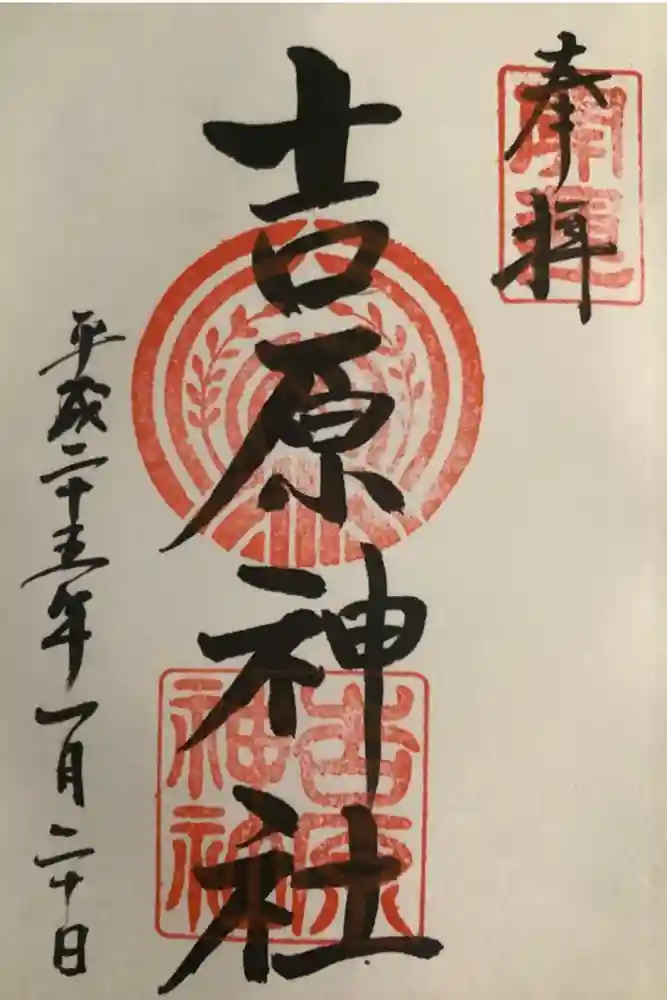 奉拝
吉原神社
吉原神社
平成二十五年一月二十日